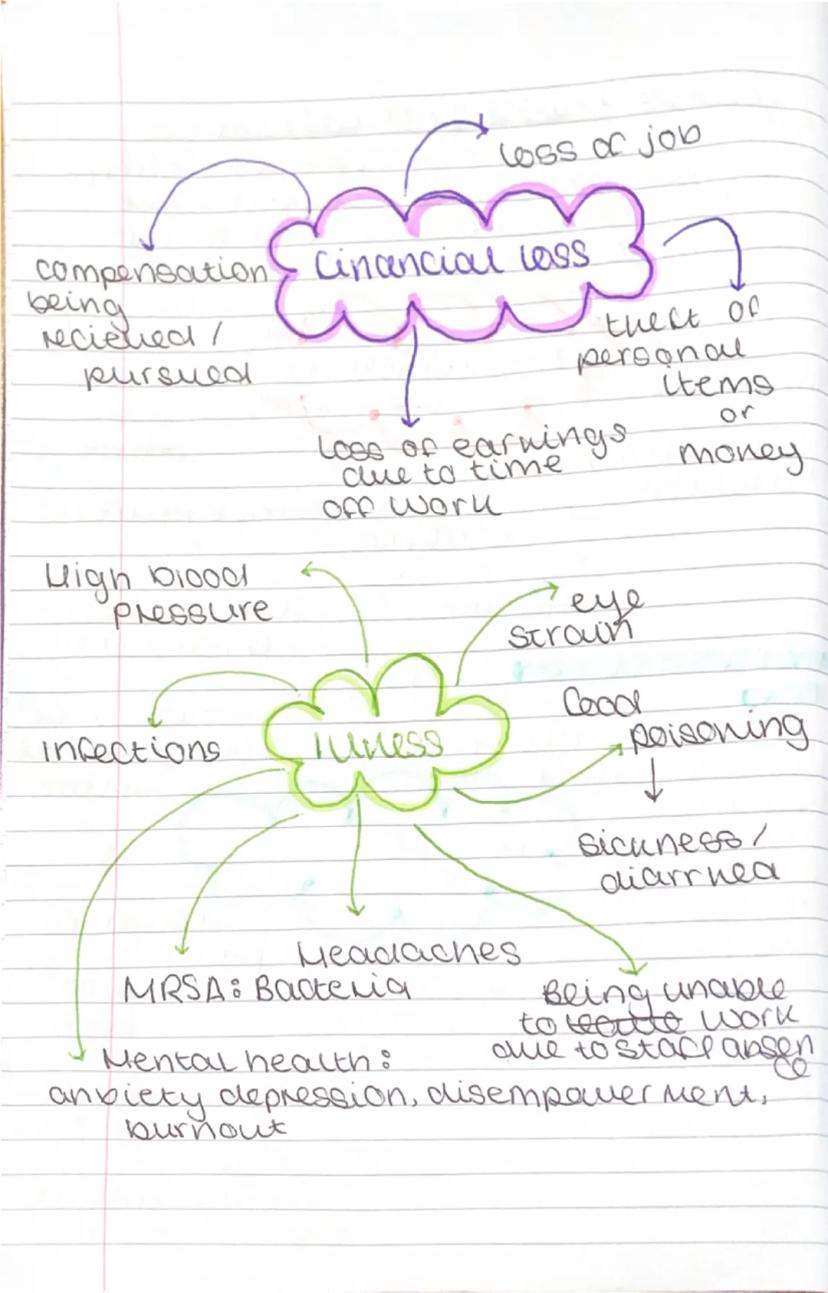 loss of job
financial loss
compensation
being
recieved /
pursued
theft of
personal
items
or
money
loss of earnings
due to time
off work
High blood
pressure
eye
strain
infections
illness
food
poisoning
sickness /
diarrhea
Headaches
MRSA: Bacteria
Being unable
to work
due to staff absen
ce
Mental health:
anxiety depression, disempowerment,
burnout